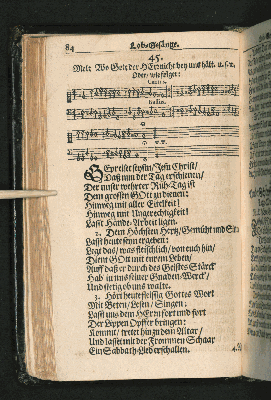 84 Lob-Gesänge.
45.
Mel: Wo Gott der HErr nicht bey uns hält. u.s.w.
Oder, wie folget:
Cantus.
Bassus.
SEyd stille Jesu Christ/
Daß nun der Tag erschienen/
Der unser wehrter Ruh-Tag ist
Dem grossen GOtt zu dienen:
Hinweg mit aller Eitelkeit!
Hinweg mit Ungerechtigkeit!
Lasst Hände-Arbeit ligen.
2. Dem Höchsten Hertz/ Gemüht und
Lasst heute seyn ergeben:
Legt das/ was fleischlich/ von euch hin/
Diene GOtt mit eurem Leben/
Auff daß er durch des Geistes Stärck
Hab in uns seiner Gnaden-Werck/
Und stetig bey uns walte.
3. Hört heute fleissig Gottes Wort
Mit Beten/ Lesen/ Singen:
Lasst uns dem HErrn fort und fort
Der Lippen Opffer bringen:
Kommt/ tretet hin zu dem Altar/
Und lasset mit der Frommen Schaar
Ein Sabbath-Lied erschallen.